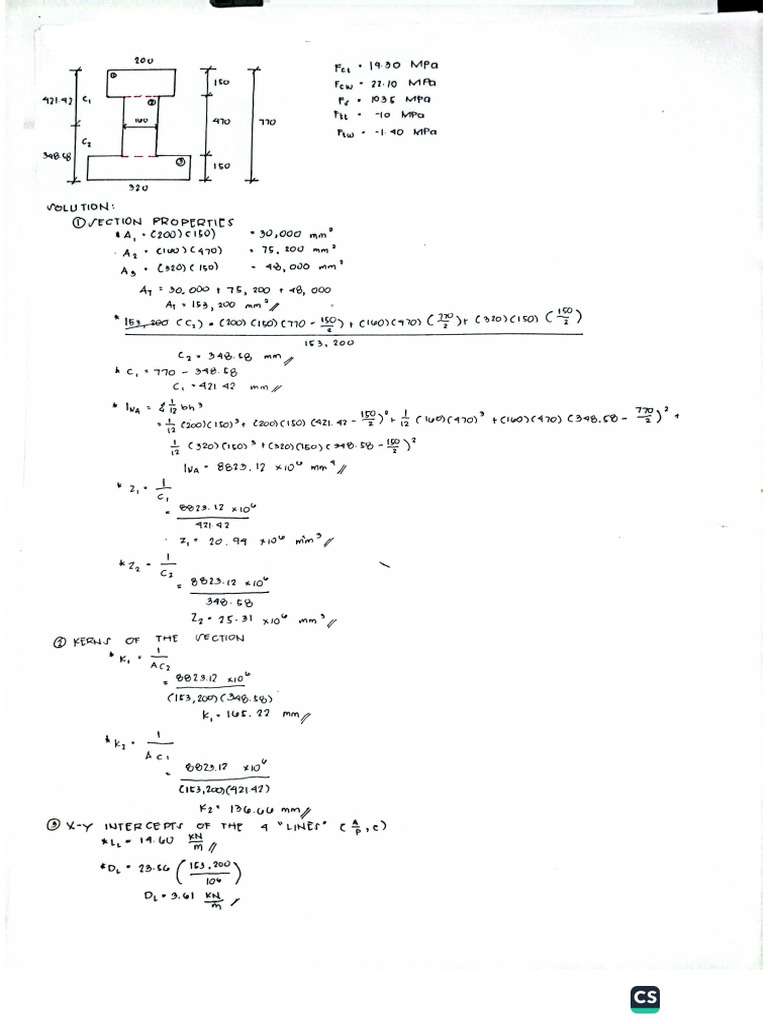 200
① 
150
421.42 C₁
②
160
470
770
C₂
348.58
③
150
320
Fct = 19.30 MPa
Fcw = 22.10 MPa
Ff = 1035 MPa
Ftt = -10 MPa
Ftw = -1.40 MPa
SOLUTION:
① SECTION PROPERTIES
* A₁ = (200)(150) = 30,000 mm²
A₂ = (160)(470) = 75,200 mm²
A₃ = (320)(150) = 48,000 mm²
AT = 30,000 + 75,200 + 48,000
AT = 153,200 mm² //
* 153,200 (C₂) = (200)(150)(770 - 150/2) + (160)(470)(770/2) + (320)(150)(150/2)
153,200
C₂ = 348.58 mm //
* C₁ = 770 - 348.58
C₁ = 421.42 mm //
* INA = Σ 1/12 bh³
= 1/12 (200)(150)³ + (200)(150)(421.42 - 150/2)² + 1/12 (160)(470)³ + (160)(470)(348.58 - 770/2)² +
1/12 (320)(150)³ + (320)(150)(348.58 - 150/2)²
INA = 8823.12 x10⁶ mm⁴ //
* Z₁ = I/C₁
= 8823.12 x10⁶ / 421.42
Z₁ = 20.94 x10⁶ mm³ //
* Z₂ = I/C₂
= 8823.12 x10⁶ / 348.58
Z₂ = 25.31 x10⁶ mm³ //
② KERNS OF THE SECTION
* K₁ = I/AC₂
= 8823.12 x10⁶ / (153,200)(348.58)
K₁ = 165.22 mm //
* K₂ = I/AC₁
= 8823.12 x10⁶ / (153,200)(421.42)
K₂ = 136.66 mm //
③ X-Y INTERCEPTS OF THE 4 "LINES" (A/P, e)
* LL = 14.60 KN/m //
* DL = 23.56 (153,200/10⁶)
DL = 3.61 KN/m //
CS